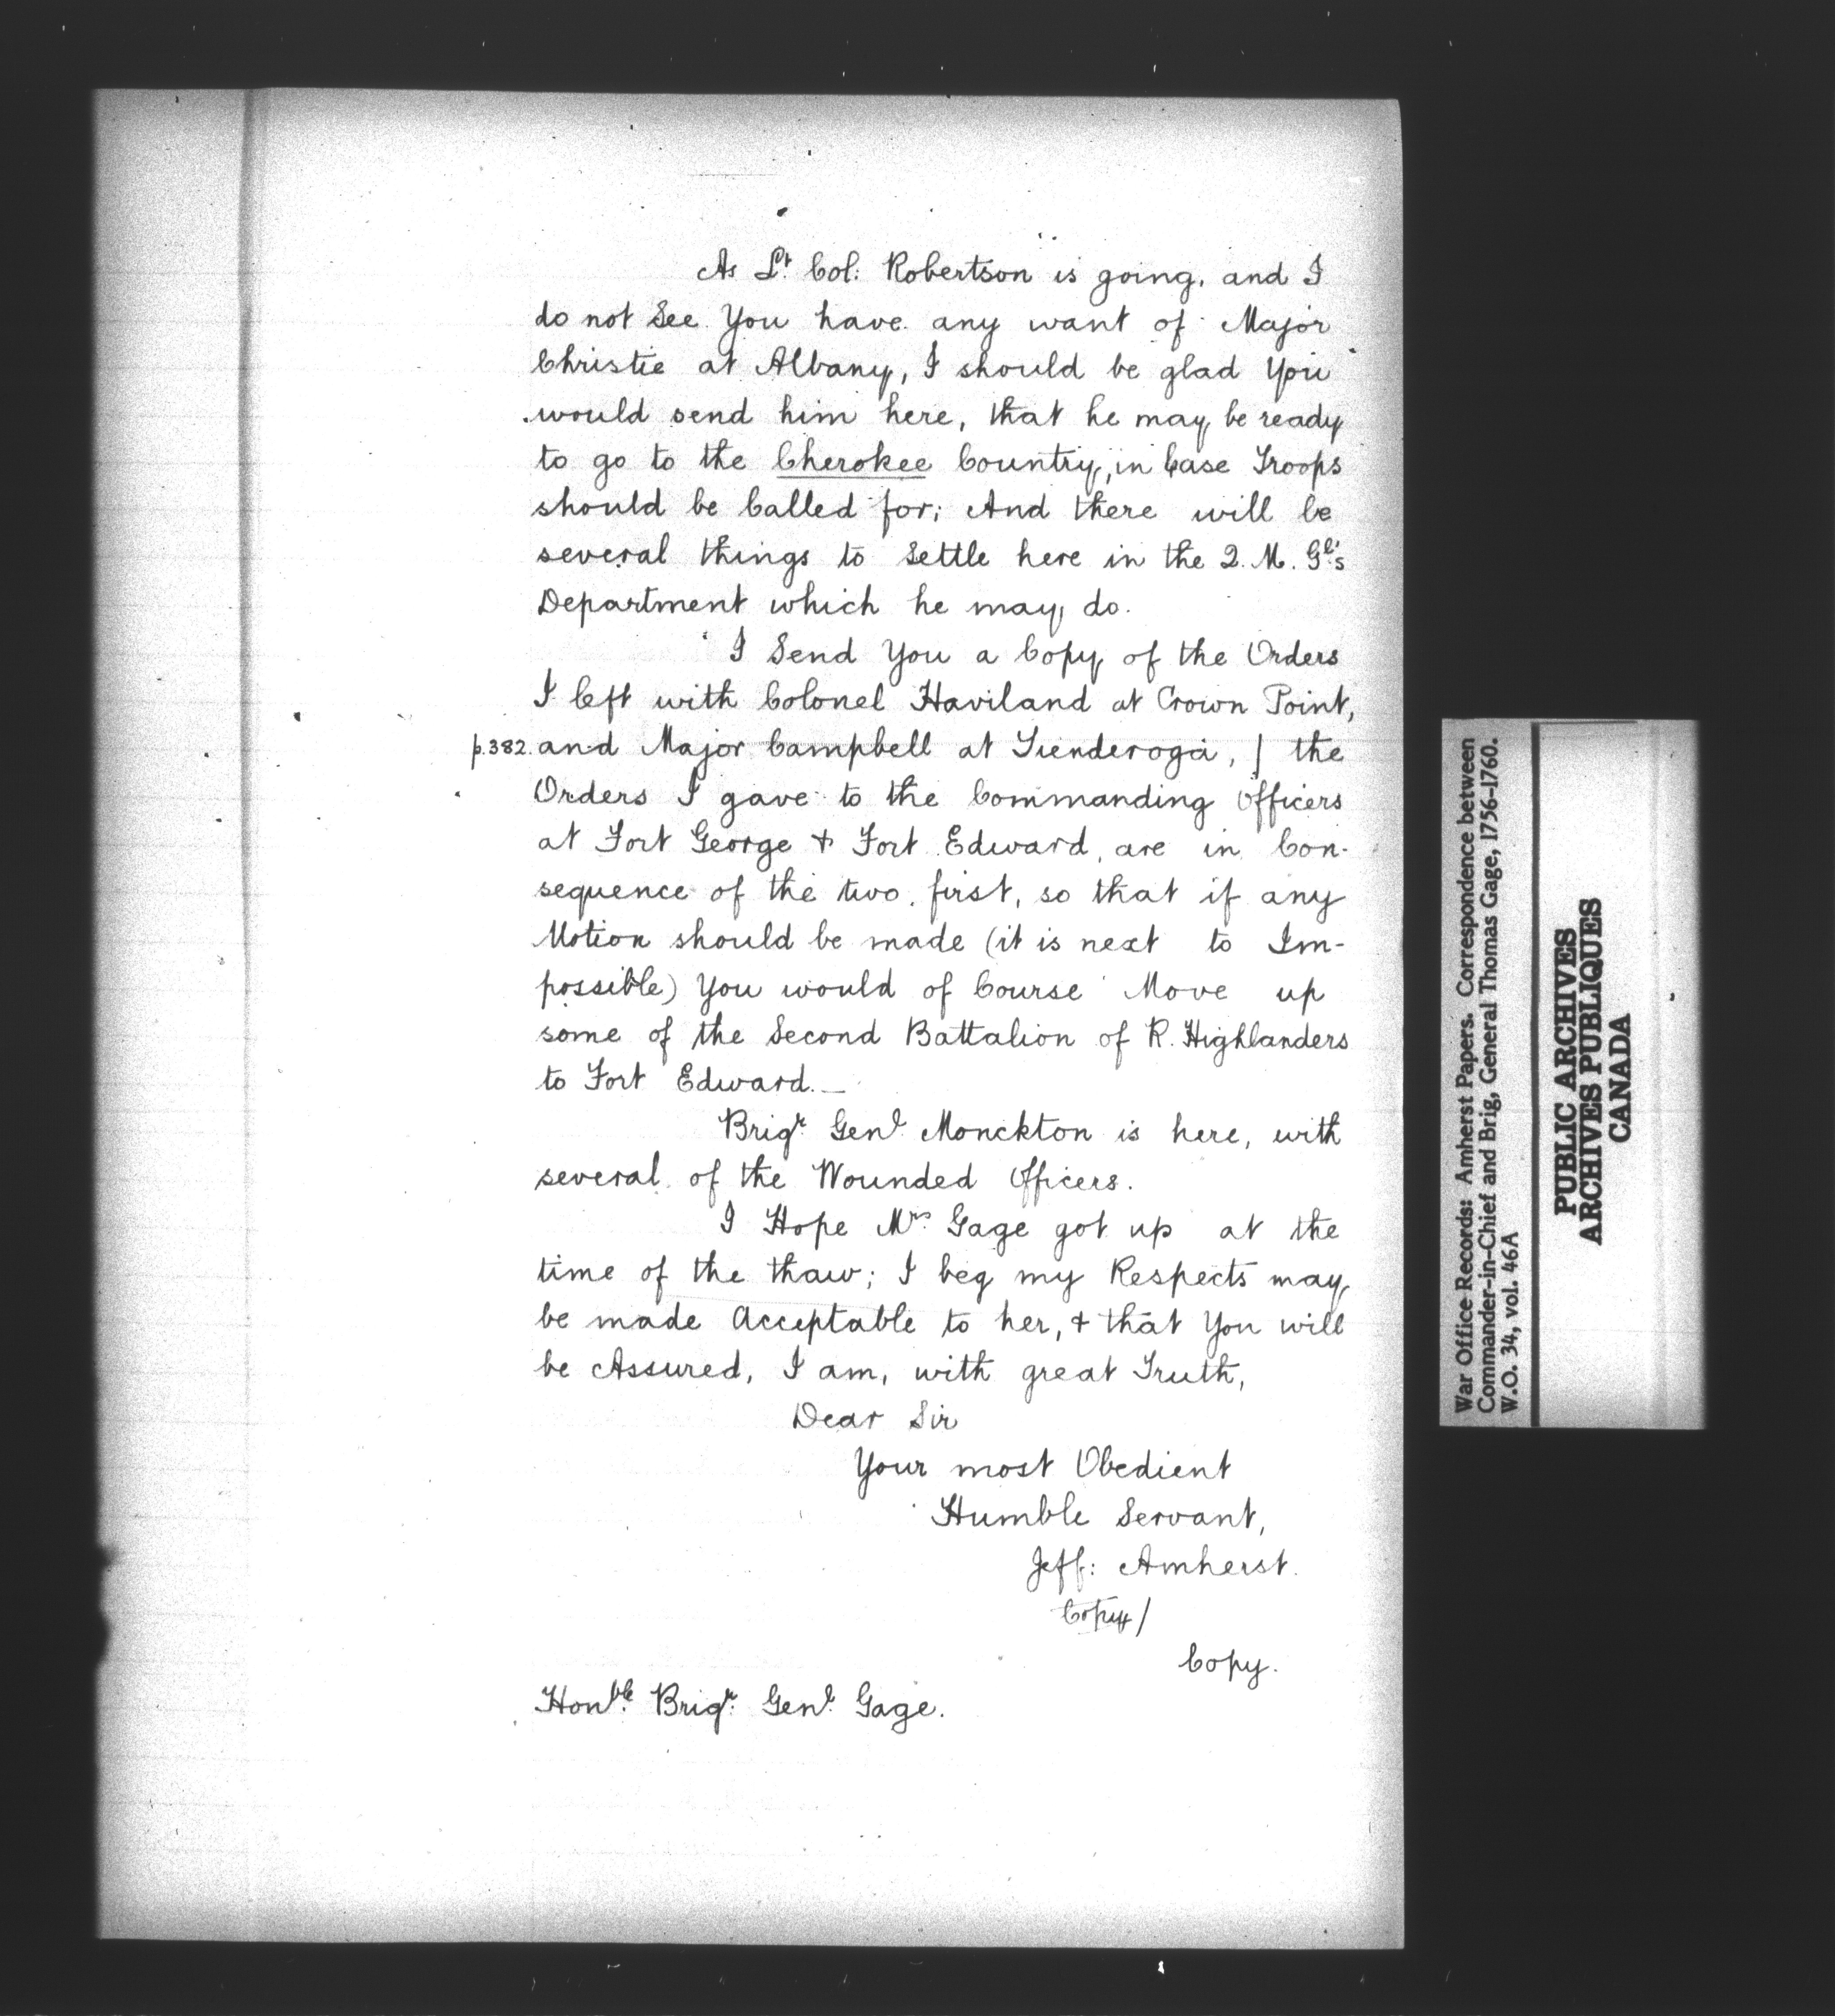 As Lt. Col: Robertson is going, and I
do not See You have any want of Major
Christie at Albany, I should be glad You
would send him here, that he may be ready
to go to the Cherokee Country, in Case Troops
should be Called for; And there will be
several things to Settle here in the Q. M. Gl's
Department which he may do.
I Send You a Copy of the Orders
I left with Colonel Haviland at Crown Point,
p.382. and Major Campbell at Tienderoga, / the
Orders I gave to the Commanding Officers
at Fort George & Fort Edward, are in Con-
sequence of the two first, so that if any
Motion should be made (it is next to Im-
possible) You would of Course Move up
some of the Second Battalion of R. Highlanders
to Fort Edward. —
Brigr. Genl. Monckton is here, with
several of the Wounded Officers.
I Hope Mrs. Gage got up at the
time of the thaw; I beg my Respects may
be made Acceptable to her, & that You will
be Assured, I am, with great Truth,
Dear Sir
Your most Obedient
Humble Servant,
Jeff: Amherst.
Copy /
Copy.
Honble. Brigr. Genl. Gage.
War Office Records: Amherst Papers. Correspondence between
Commander-in-Chief and Brig, General Thomas Gage, 1756-1760.
W.O. 34, vol. 46A
PUBLIC ARCHIVES
ARCHIVES PUBLIQUES
CANADA